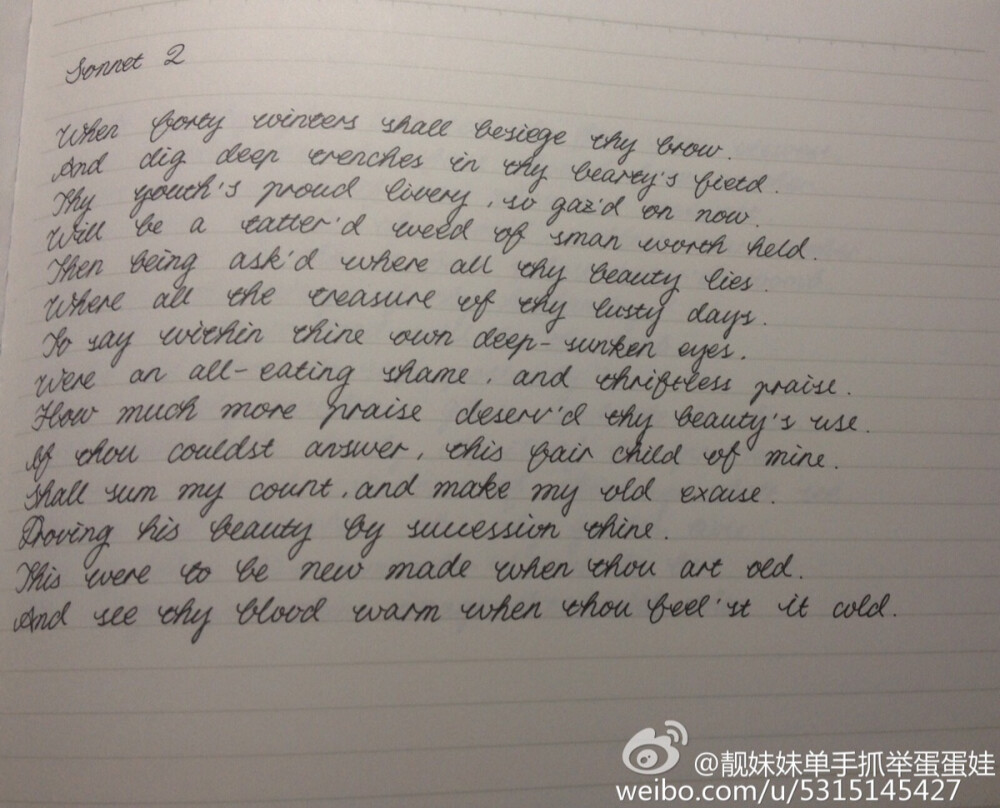 Sonnet 2
When forty winters shall besiege thy brow.
And dig deep trenches in thy bearty's field.
Thy youth's proud livery, so gaz'd on now.
Will be a tatter'd weed of sman worth held.
Then being ask'd where all thy beauty lies.
Where all the treasure of thy lusty days.
To say within thine own deep-sunken eyes.
Were an all-eating shame, and thriftless praise.
How much more praise deserv'd thy beauty's use.
If thou couldst answer, this fair child of mine.
Shall sum my count, and make my old excuse.
Proving his beauty by succession thine.
This were to be new made when thou art old.
And see thy blood warm when thou feel'st it cold.
@靓妹妹单手抓举蛋蛋娃
weibo.com/u/5315145427